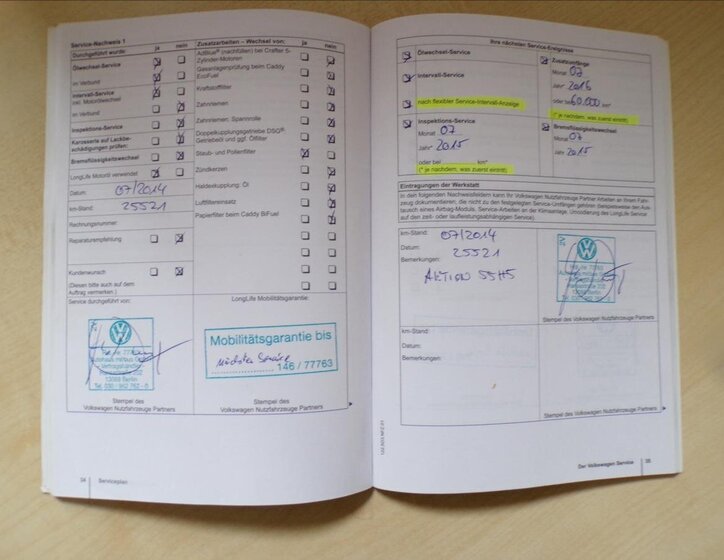 Service-Nachweis 1
Durchgeführt wurde: ja nein
Ölwechsel-Service
im Verbund
Intervall-Service
inkl. Motorölwechsel
im Verbund
Inspektions-Service
Karosserie auf Lackbe-
schädigungen prüfen:
Bremsflüssigkeitswechsel
LongLife Motoröl verwendet
Datum: 07/2014
km-Stand: 25521
Rechnungsnummer:
Reparaturempfehlung
Kundenwunsch
(Diesen bitte auch auf dem
Auftrag vermerken.)
Service durchgeführt von:
Autohaus
Vertragshändler
13088 Berlin
Tel. 030 / 962 762 - 0
Stempel des
Volkswagen Nutzfahrzeuge Partners
34 Serviceplan
Zusatzarbeiten – Wechsel von: ja nein
AdBlue® (nachfüllen) bei Crafter 5-
Zylinder-Motoren
Gasanlagenprüfung beim Caddy
EcoFuel
Kraftstofffilter
Zahnriemen
Zahnriemen, Spannrolle
Doppelkupplungsgetriebe DSG®:
Getriebeöl und ggf. Ölfilter
Staub- und Pollenfilter
Zündkerzen
Haldexkupplung: Öl
Luftfiltereinsatz
Papierfilter beim Caddy BiFuel
LongLife Mobilitätsgarantie:
Mobilitätsgarantie bis
nächsten Service
146 / 77763
Stempel des
Volkswagen Nutzfahrzeuge Partners
Ihre nächsten Service-Ereignisse
Ölwechsel-Service
Intervall-Service
nach flexibler Service-Intervall-Anzeige
Zusatzumfänge
Monat 07
Jahr* 2016
oder bei 60.000 km*
(* je nachdem, was zuerst eintritt)
Inspektions-Service
Monat 07
Jahr* 2015
oder bei km*
(* je nachdem, was zuerst eintritt)
Bremsflüssigkeitswechsel
Monat 07
Jahr 2015
Eintragungen der Werkstatt
In den folgenden Nachweisfeldern kann Ihr Volkswagen Nutzfahrzeuge Partner Arbeiten an Ihrem Fahr-
zeug dokumentieren, die nicht zu den festgelegten Service-Umfängen gehören (beispielsweise den Aus-
tausch eines Airbag-Moduls, Service-Arbeiten an der Klimaanlage, Umcodierung des LongLife Service
auf den zeit- oder laufleistungsabhängigen Service).
km-Stand: 07/2014
Datum: 25521
Bemerkungen:
AKTION 55H5
Stempel des
Volkswagen Nutzfahrzeuge Partners
km-Stand:
Datum:
Bemerkungen:
Stempel des
Volkswagen Nutzfahrzeuge Partners
Der Volkswagen Service 35